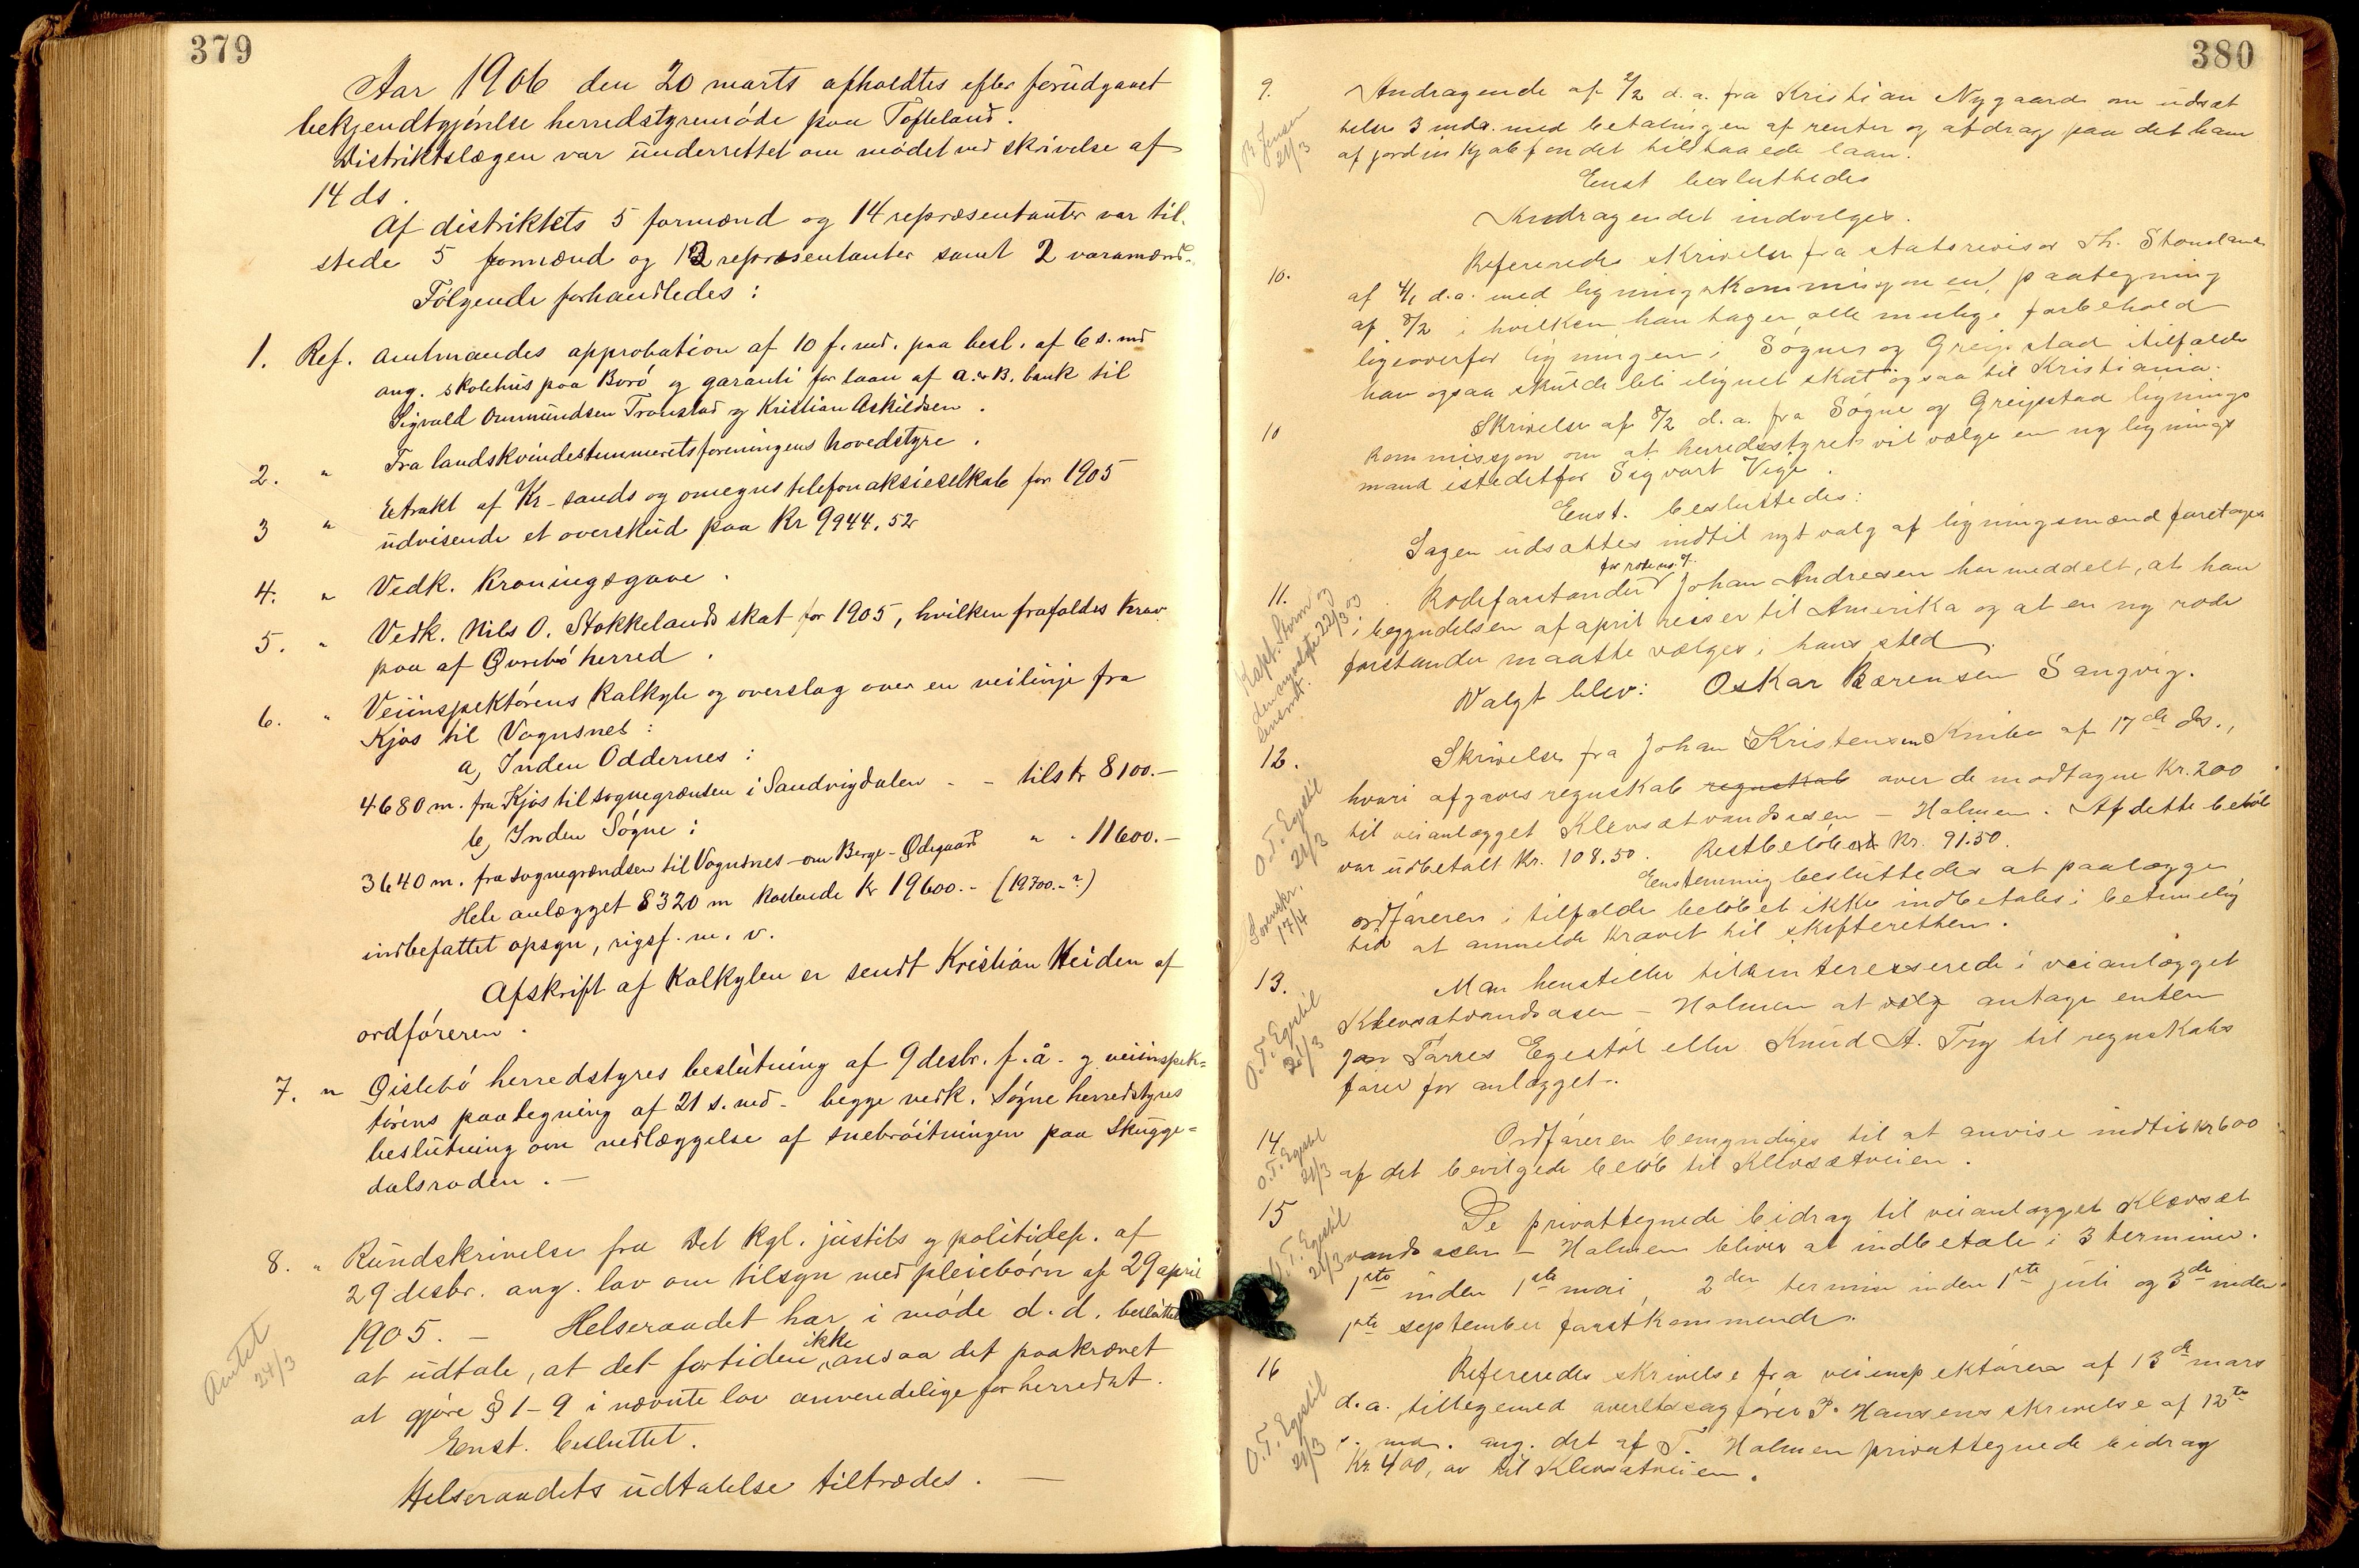 379
Aar 1906 den 20 marts afholdtes efter forudgaaet
bekjendtgjörelse herredstyremöde paa Tofteland.
Distriktslægen var underrettet om mödet ved skrivelse af
14 ds.
Af distriktets 5 formænd og 14 repræsentanter var til-
stede 5 formænd og 12 repræsentanter samt 2 varamænd.
Fölgende forhandledes:
1. Ref. Amtmandes approbation af 10 f. md. paa besl. af 6 s. md
ang. skolehus paa Borö og garanti for laan af a. & B. bank til
Sigvald Ommundsen Tronstad og Kristian Askildsen.
2. " Fra landskvindestemmeretsforeningens hovedstyre.
3 " Extrakt af Kr-sands og omegns telefonaksieselkab for 1905
udvisende et overskud paa Kr 9944.52
4. " Vedk. Kroningsgave.
5. " Vedk. Nils O. Stokkelands skat for 1905, hvilken frafaldes krav
paa af Øvrebö herred.
6. " Veiinspektörens Kalkyle og overslag over en veilinje fra
Kjos til Vognsnes:
a) Inden Oddernes:
4680 m. fra Kjos til sognegrænsen i Sandvigdalen - - tils kr 8100.-
b) Inden Sögne:
3640 m. fra sognegrændsen til Vognsnes - om Berge - Ödegaard " - 11600.-
Hele anlægget 8320 m kostende Kr 19600.- (19700.-?)
indbefattet opsyn, rigsf. m. v.
Afskrift af Kalkylen er sendt Kristian Heiden af
ordföreren.
7. " Gislebö herredstyres beslutning af 9 desbr. f. å. og veiinspek-
törens paategning af 21 s. md. begge vedk. Sögne herredstyres
beslutning om nedlæggelse af snebröitningen paa Skugge-
dalsroden. -
8. " Rundskrivelse fra Det Kgl. justits og politidep. af
29 desbr. ang. lov om tilsyn med pleiebörn af 29 april
1905. - Helseraadet har i möde d. d. besluttet
at udtale, at det fortiden ikke ansaa det paakrævet
at gjöre § 1-9 i nævnte lov anvendelige for herredet.
Enst. besluttet.
Helseraadets udtalelse tiltrædes. -
Amtet
24/3
380
9. Andragende af 2/2 d. a. fra Kristian Nygaard om udsæt
telse 3 mdr. med betalingen af renter og afdrag paa det ham
af jordindkjøbsfondet tilstaaede laan.
Enst besluttedes
Andragendet indvilges.
B. Jensen
21/3
10. Refereredes skrivelse fra statsrevisor Th. Stousland
af 4/1 d. a. med ligningskommisjonens paategning
af 8/2 i hvilken han tager alle mulige forbehold
ligeoverfor ligningen i Sögne og Greipstad itilfælde
han ogsaa skulde bli ilignet skat ogsaa til Kristiania.
10 Skrivelse af 8/2 d. a. fra Sögne og Greipstad lignings
kommissjon om at herredsstyret vil vælge en ny lignings
mand istedetfor Sigvart Vige.
Enst. besluttedes:
Sagen udsættes indtil nyt valg af ligningsmænd foretages
11. Rodeforstander for rode no. 7. Johan Andresen har meddelt, at han
i begyndelsen af april reiser til Amerika og at en ny rode
forstander maatte vælges i hans sted.
Valgt blev: Oskar Bærensen Sangvig.
Kapt. Storm og
den nyvalgte 22/3 og
lensmd.
12. Skrivelse fra Johan Kristensen Knibe af 17de ds.,
hvori afgaves regnskab regnskab over de modtagne Kr. 200
til veianlægget Klevsætvandsasen - Holmen. Af dette belöb
var udbetalt Kr. 108.50. Restbelöbet Kr. 91.50.
Eenstemmig besluttedes at paalægge
ordföreren i tilfælde belöbet ikke indbetales i betimelig
tid at anmelde kravet til skifteretten.
O. T. Egestöl
21/3
Sorenskr.
17/4
13. Man henstiller til interesserede i veianlægget
Klevsætvandsasen - Holmen at valg antage enten
Jon Tarres Egestöl eller Knud A. Try til regnskabs
förer for anlægget.
O. T. Egestöl
21/3
14. Ordföreren bemyndiges til at anvise indtil kr 600
af det bevilgede belöb til Klevsætveien.
O. T. Egestöl
21/3
15 De privattegnede bidrag til veianlægget Klævsæt
vandsasen - Holmen bliver at indbetale i 3 terminer.
1ste inden 1ste mai, 2den termin inden 1ste juli og 3de inden
1ste september förstkommende.
O. T. Egestöl
21/3
16 Refereredes skrivelse fra veiinspektören af 13de mars
d. a. tilligemed overretssagförer P. Hansens skrivelse af 12te
s. md. ang. det af T. Holmen privattegnede bidrag
Kr. 400, av til Klevsætveien.
O. T. Egestöl
21/3